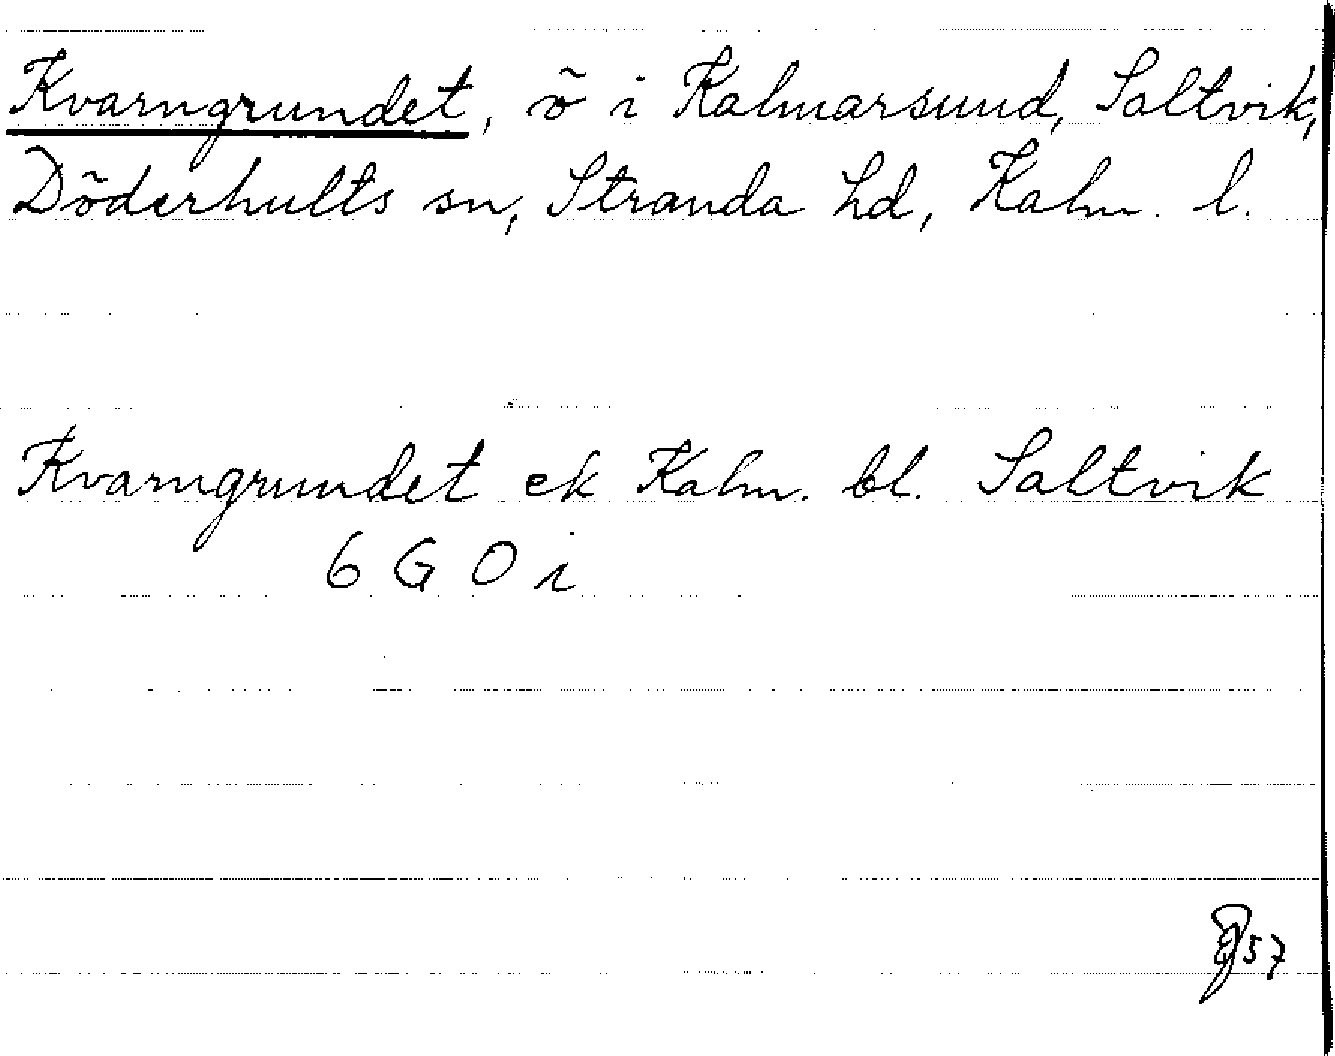 Kvarngrundet, ö i Kalmarsund, Saltvik,
Döderhults sn, Stranda hd, Kalm. l.
Kvarngrundet ek Kalm. bl. Saltvik
6 G 0 i
57